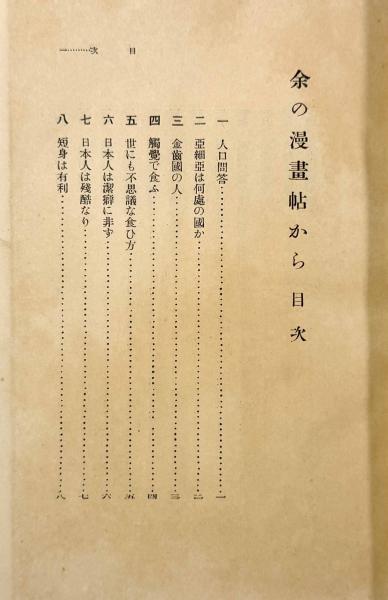 余の漫畫帖から 目次
一 人口問答……………一
二 亞細亞は何處の國か……………二
三 金齒國の人……………三
四 觸覺で食ふ……………四
五 世にも不思議な食ひ方……………五
六 日本人は潔癖に非ず……………六
七 日本人は殘酷なり……………七
八 短身は有利……………八
目 次…………一